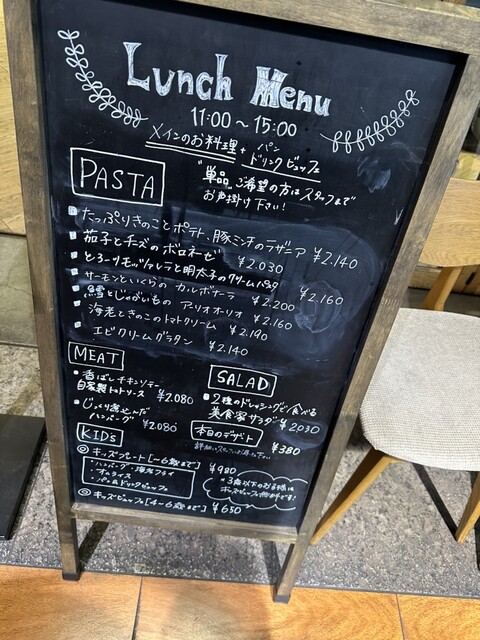 Lunch Menu
11:00〜15:00
メインのお料理 + パン
ドリンクビュッフェ
"単品"ご希望の方はスタッフまで
お声掛け下さい!
PASTA
たっぷりきのことポテト、豚ミンチのラザニア ¥2.140
茄子とチーズのボロネーゼ ¥2.030
とろーりモッツァレラと明太子のクリームパスタ ¥2.160
サーモンといくらのカルボナーラ ¥2.200
鱈とじゃがいものアーリオオーリオ ¥2.160
海老ときのこのトマトクリーム ¥2.190
エビクリームグラタン ¥2.140
MEAT
・香ばしチキンソテー
自家製トマトソース ¥2.080
・じっくり煮込んだ
ハンバーグ ¥2.080
SALAD
・2種のドレッシングで食べる
美食家サラダ ¥2030
本日のデザート ¥380
KIDs
◎キッズプレート[〜6歳まで] ¥980
・ハンバーグ・海老フライ
・オムライス
・パン&ドリンクビュッフェ
*3歳以下のお子様は
キッズビュッフェ無料です!
◎キッズビュッフェ[4〜6歳まで] ¥650